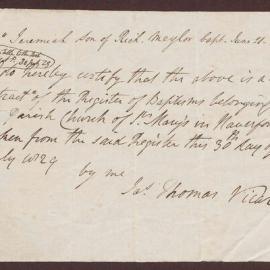 Jeremiah son of Rich. Meyler bapt. June 21.
do hereby certify that the above is a
tract of the Register of Baptisms belonging
Parish Church of St. Mary's in Haverfor
ken from the said Register this 30th day of
ly 1829
by me
Jas. Thomas Vicar